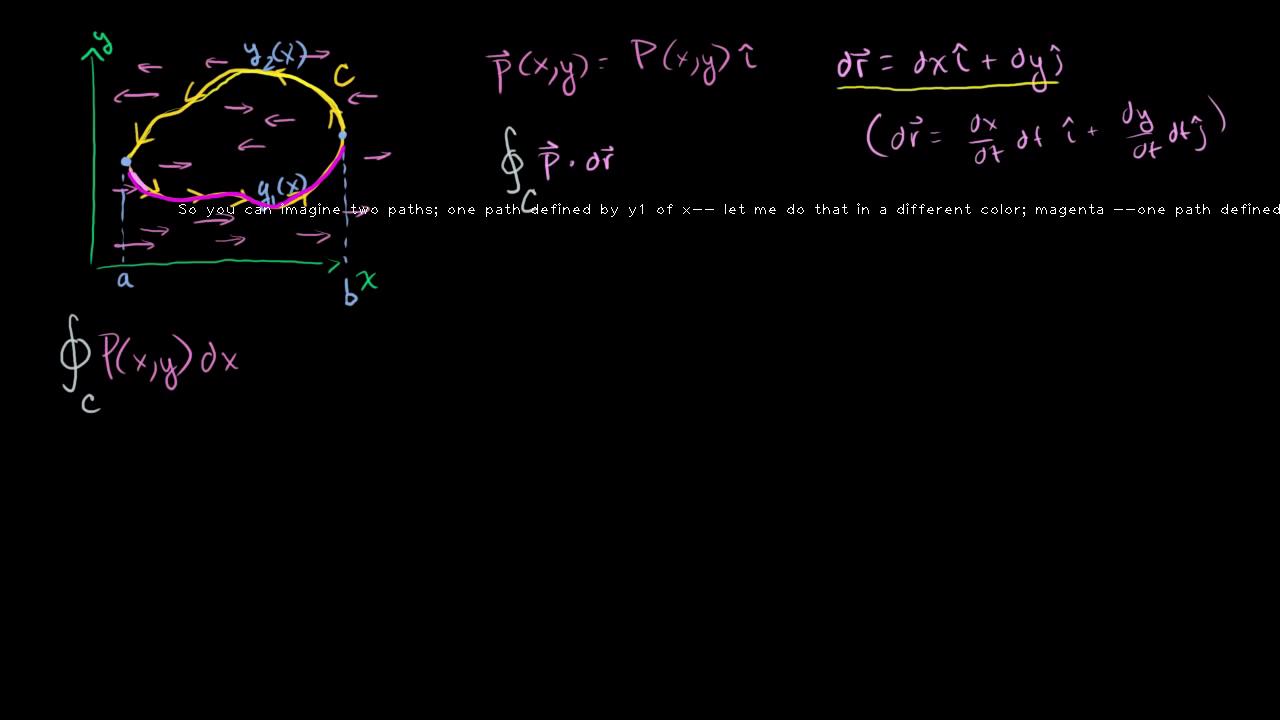 y
y₂(x)
C
P⃗(x,y) = P(x,y) î
dr⃗ = dx î + dy ĵ
(dr⃗ = dx/dt dt î + dy/dt dt ĵ)
∮_C P⃗ · dr⃗
y₁(x)
So you can imagine two paths; one path defined by y1 of x-- let me do that in a different color; magenta --one path defined
a
b
x
∮_C P(x,y) dx